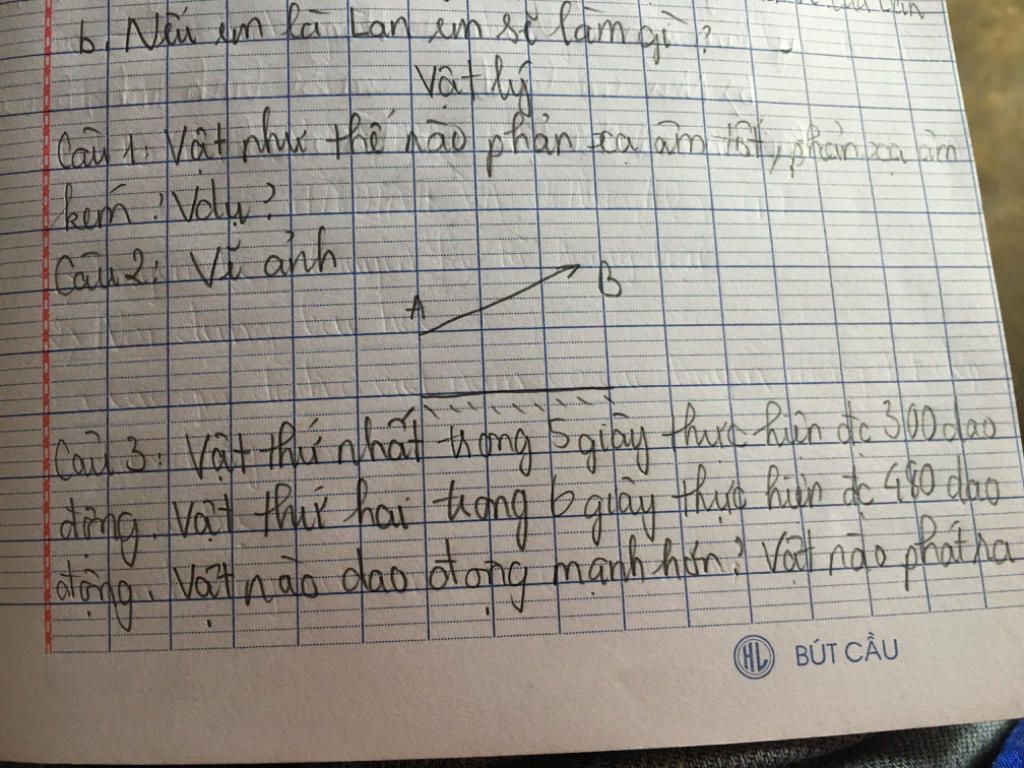 b, Nếu em là Lan em sẽ làm gì?
Vật lý
Câu 1: Vật như thế nào phản xạ âm tốt, phản xạ âm
kém? Ví dụ?
Câu 2: Vẽ ảnh
A B
Câu 3: Vật thứ nhất trong 5 giây thực hiện đc 300 dao
động. Vật thứ hai trong 6 giây thực hiện đc 480 dao
động. Vật nào dao động mạnh hơn? Vật nào phát ra
HL BÚT CẦU